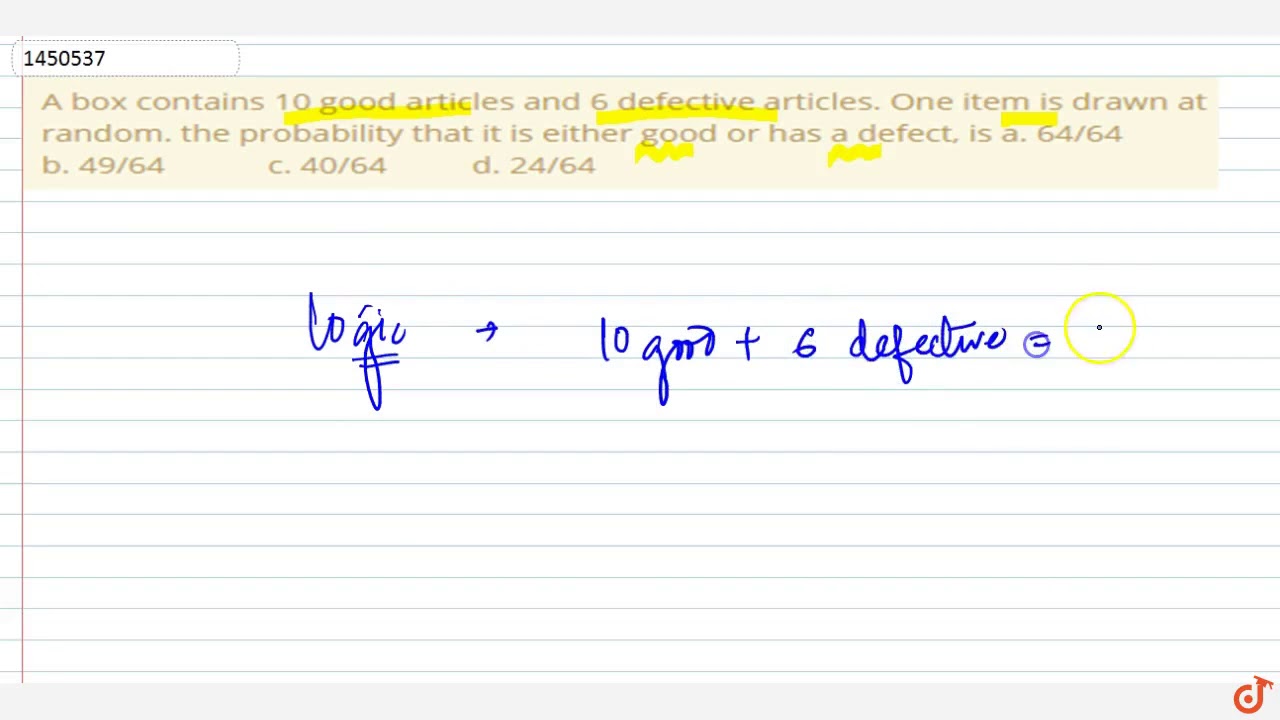 1450537
A box contains 10 good articles and 6 defective articles. One item is drawn at
random. the probability that it is either good or has a defect, is a. 64/64
b. 49/64 c. 40/64 d. 24/64
logic → 10 good + 6 defective =